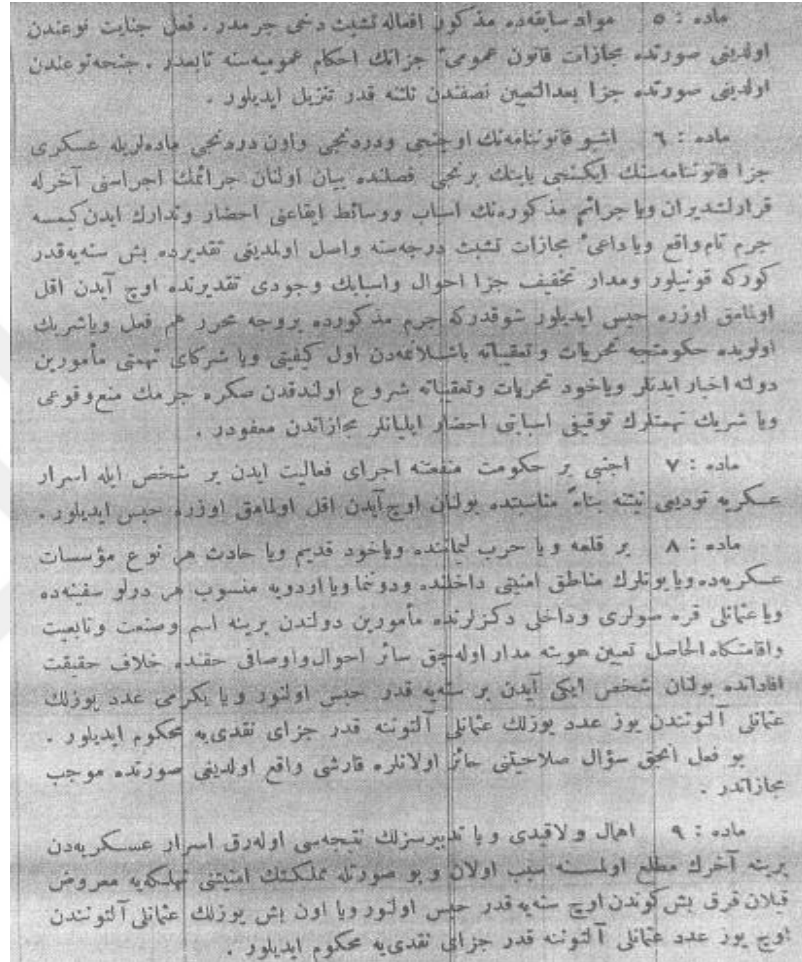 ماده : ٥ مواد سابقه‌ده مذكور افعاله تشبث دخی جرمدر . فعل جنايت نوعندن
اولديغی صورتده مجازات قانون عمومیٔ جزانك احكام عموميه‌سنه تابعدر . جنحه نوعندن
اولديغی صورتده جزا بعدالتعيين نصفندن ثلثنه قدر تنزيل ايديلور .
ماده : ٦ اشبو قانوننامه‌نك اوچنجی ودردنجی واون دردنجی ماده‌لريله عسكری
جزا قانوننامه‌سنك ايكنجی بابنك برنجی فصلنده بيان اولنان جرائمك اجراسنی آخرله
قرارلشديران ويا جرائم مذكوره‌نك اسباب ووسائط ايقاعنی احضار وتدارك ايدن كيمسه
جرم تام واقع وياداعیٔ مجازات تشبث درجه‌سنه واصل اولمديغی تقديرده بش سنه‌يه قدر
كوركه قونيلور ومدار تخفيف جزا احوال واسبابك وجودی تقديرنده اوچ آيدن اقل
اولمامق اوزره حبس ايديلور شوقدركه جرم مذكورده بروجه محرر هم فعل وياشريك
اولوبده حكومتجه تحريات وتعقيباته باشلانمه‌دن اول كيفيتی ويا شركای تهمتی مأمورين
دولته اخبار ايدنلر وياخود تحريات وتعقيباته شروع اولندقدن صكره جرمك منع وقوعی
ويا شريك تهمتلرك توقيفی اسبابنی احضار ايليانلر مجازاتدن معفودر .
ماده : ٧ اجنبی بر حكومت منفعتنه اجرای فعاليت ايدن بر شخص ايله اسرار
عسكريه توديعی نيتنه بناءً مناسبتده بولنان اوچ آيدن اقل اولمامق اوزره حبس ايديلور .
ماده : ٨ بر قلعه ويا حرب ليماننده وياخود قديم ويا حادث هر نوع مؤسسات
عسكريه‌ده ويا بونلرك مناطق امنيتی داخلنده ودونما ويا اردويه منسوب هر درلو سفينه‌ده
ويا عثمانلی قره صولری وداخلی دكزلرنده مأمورين دولتدن برينه اسم وصنعت وتابعيت
واقامتكاه الحاصل تعيين هويته مدار اوله‌جق سائر احوال واوصافی حقنده خلاف حقيقت
افاداتده بولنان شخص ايكی آيدن بر سنه‌يه قدر حبس اولنور ويا يكرمی عدد يوزلك
عثمانلی آلتونندن يوز عدد يوزلك عثمانلی آلتوننه قدر جزای نقدی‌يه محكوم ايديلور .
بو فعل انجق سؤال صلاحيتنی حائز اولانلره قارشی واقع اولديغی صورتده موجب
مجازاتدر .
ماده : ٩ اهمال ولاقيدی ويا تدبيرسزلك نتيجه‌سی اوله‌رق اسرار عسكريه‌دن
برينه آخرك مطلع اولمسنه سبب اولان و بو صورتله مملكتك امنيتنی تهلكه‌يه معروض
قيلان قرق بش كوندن اوچ سنه‌يه قدر حبس اولنور ويا اون بش يوزلك عثمانلی آلتونندن
اوچ يوز عدد عثمانلی آلتوننه قدر جزای نقدی‌يه محكوم ايديلور .